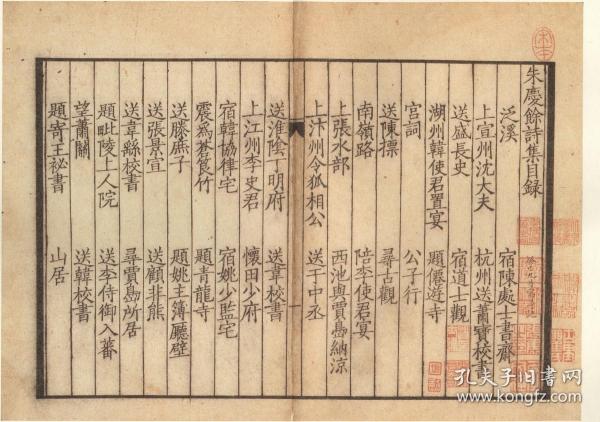 朱慶餘詩集目録
泛溪 宿陳處士書齋
上宣州沈大夫 杭州送蕭寶校書
送盛長史 宿道士觀
湖州韓使君置宴 題僊遊寺
宮詞 公子行
送陳摽 尋古觀
南嶺路 陪李使君宴
上張水部 西池與賈島納涼
上汴州令狐相公 送于中丞
送淮陰丁明府 送韋校書
上江州李史君 懷田少府
宿韓協律宅 宿姚少監宅
震爲蒼筤竹 題青龍寺
送滕庶子 題姚主簿廳壁
送張景宣 送顧非熊
送韋繇校書 尋賈島所居
題毗陵上人院 送李侍御入蕃
望蕭關 送韓校書
題寄王祕書 山居
孔夫子旧书网